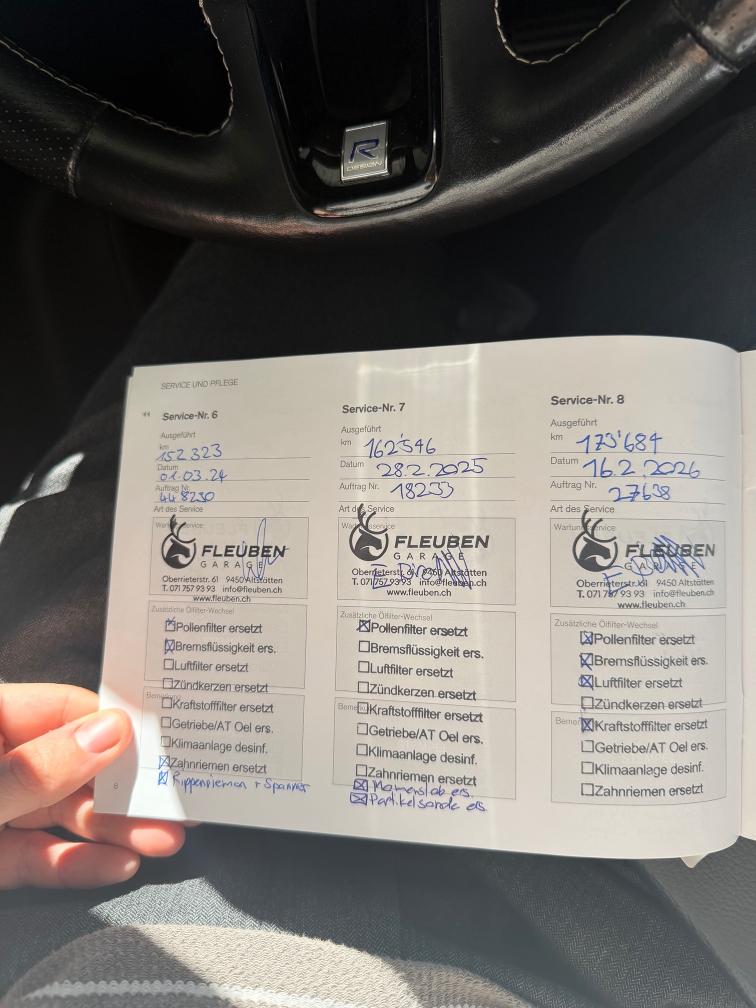 R
DESIGN
SERVICE UND PFLEGE
Service-Nr. 6
Ausgeführt
km 152323
Datum 01.03.24
Auftrag Nr. 448230
Art des Service
Wartungsservice
FLEUBEN
GARAGE
Oberrieterstr. 61 9450 Altstätten
T. 071 757 93 93 info@fleuben.ch
www.fleuben.ch
Zusätzliche Ölfilter-Wechsel
☒Pollenfilter ersetzt
☒Bremsflüssigkeit ers.
☐Luftfilter ersetzt
☐Zündkerzen ersetzt
☐Kraftstofffilter ersetzt
☐Getriebe/AT Oel ers.
☐Klimaanlage desinf.
☒Zahnriemen ersetzt
☒ Rippenriemen + Spanner
8
Service-Nr. 7
Ausgeführt
km 162'546
Datum 28.2.2025
Auftrag Nr. 18233
Art des Service
FLEUBEN
GARAGE
Oberrieterstr. 61 9450 Altstätten
T. 071 757 93 93 info@fleuben.ch
www.fleuben.ch
Zusätzliche Ölfilter-Wechsel
☒Pollenfilter ersetzt
☐Bremsflüssigkeit ers.
☐Luftfilter ersetzt
☐Zündkerzen ersetzt
☐Kraftstofffilter ersetzt
☐Getriebe/AT Oel ers.
☐Klimaanlage desinf.
☐Zahnriemen ersetzt
☒ ers.
☒ Partikelsonde ers.
Service-Nr. 8
Ausgeführt
km 173'684
Datum 16.2.2026
Auftrag Nr. 27638
Art des Service
Wartungsservice
FLEUBEN
GARAGE
Oberrieterstr. 61 9450 Altstätten
T. 071 757 93 93 info@fleuben.ch
www.fleuben.ch
Zusätzliche Ölfilter-Wechsel
☒Pollenfilter ersetzt
☒Bremsflüssigkeit ers.
☒Luftfilter ersetzt
☐Zündkerzen ersetzt
☒Kraftstofffilter ersetzt
☐Getriebe/AT Oel ers.
☐Klimaanlage desinf.
☐Zahnriemen ersetzt